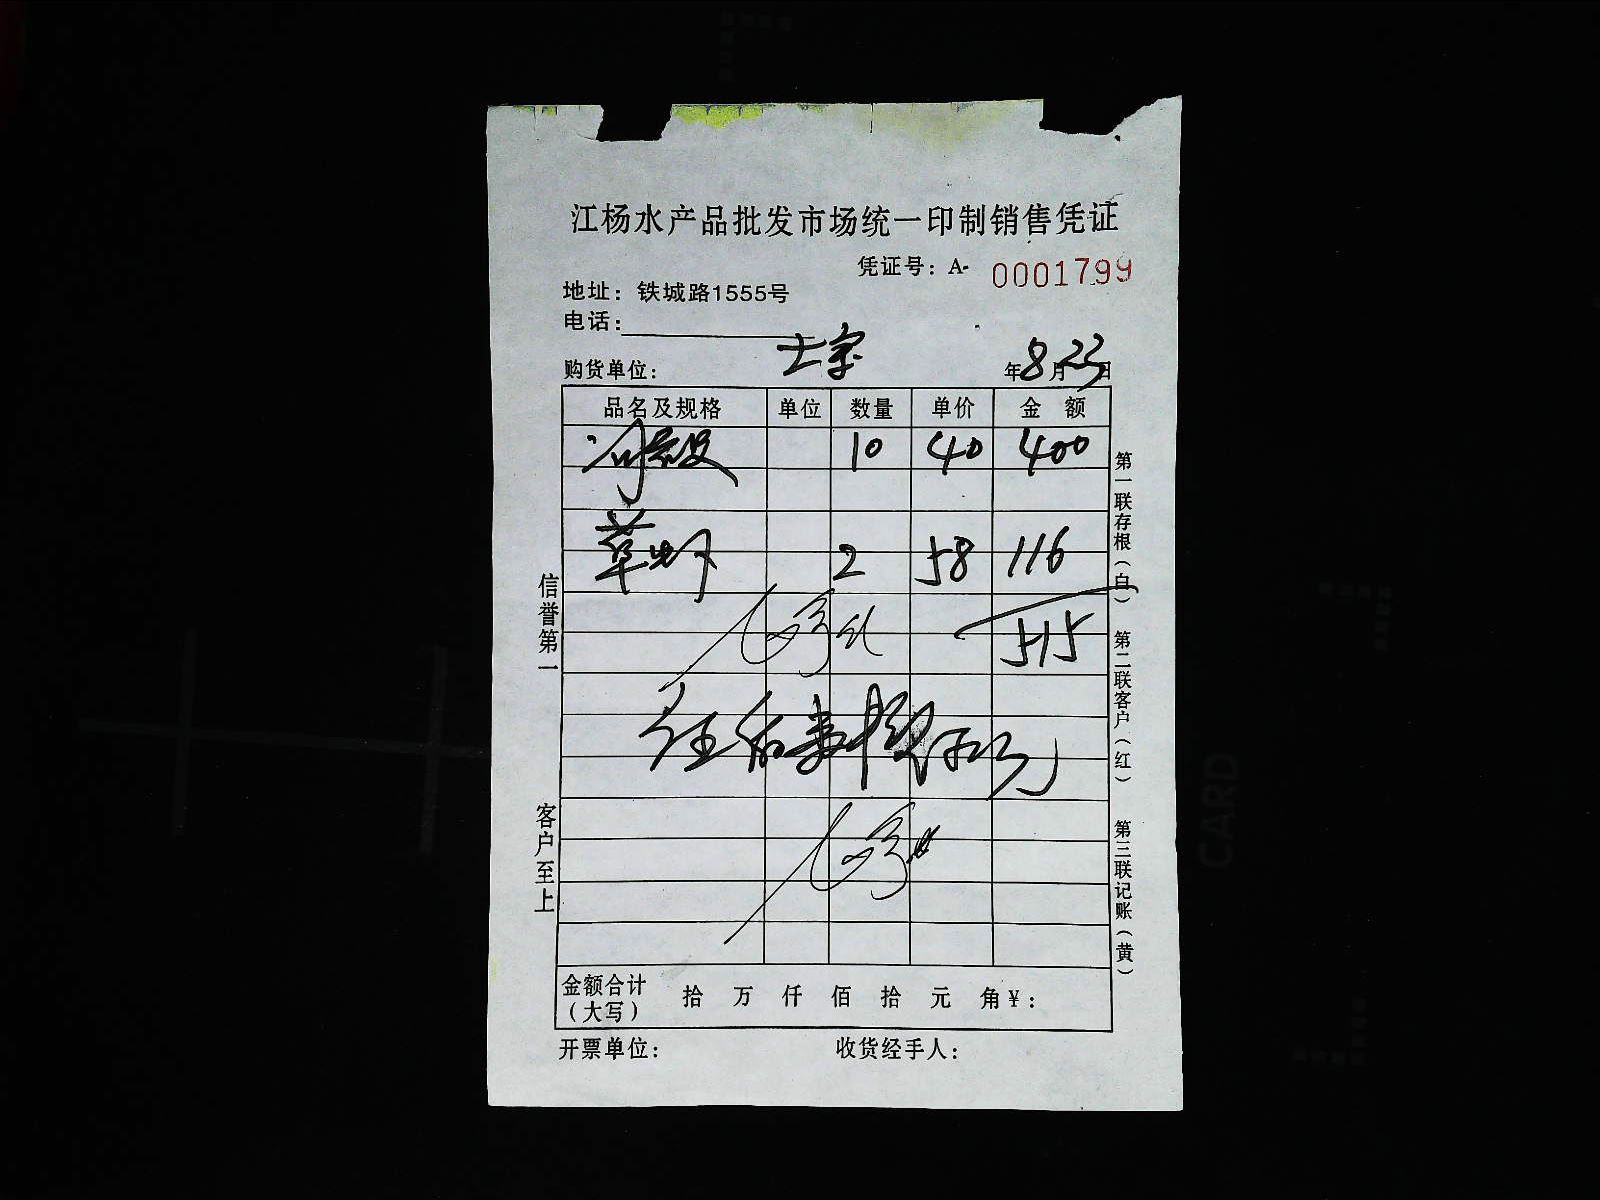 江杨水产品批发市场统一印制销售凭证
凭证号：A- 0001799
地址：铁城路1555号
电话：
购货单位： 年8月23日
品名及规格 单位 数量 单价 金额
10 40 400
草 2 58 116
515
金额合计（大写） 拾 万 仟 佰 拾 元 角¥：
开票单位： 收货经手人：
信誉第一
客户至上
第一联存根（白）
第二联客户（红）
第三联记账（黄）